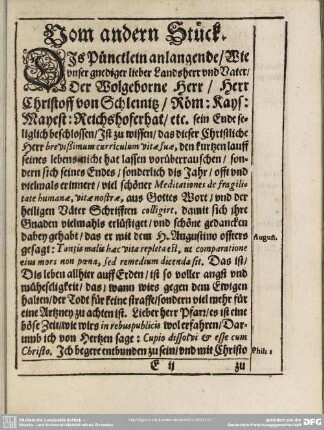 Vom andern Stück.
DIs Pünctlein anlangende / Wie
vnser gnediger lieber Landsherr vnd Vater /
Der Wolgeborne Herr / Herr
Christoff von Schleinitz / Röm: Kays:
Mayest: Reichshofferhat / etc. sein Ende se-
liglich beschlossen / Ist zu wissen / das dieser Christliche
Herr brevißimum curriculum vitæ suæ, den kurtzen lauff
seines lebens nicht hat lassen vorüberrauschen / son-
dern sich seines Endes / sonderlich dis Jahr / offt vnd
vielmals erinnert / viel schöner Meditationes de fragili-
tate humanæ, vitæ nostræ, aus Gottes Wort / vnd der
heiligen Väter Schrifften colligirt, damit sich ihre
Gnaden vielmahls erlüstiget / vnd schöne gedancken
dabey gehabt / das er mit dem H. Augustino offters
gesagt: Tantis malis hæc vita repleta est, ut comparatione
eius mors non pœna, sed remedium dicenda sit. Das ist /
Dis leben allhier auff Erden / ist so voller angst vnd
müheseligkeit / das / wann wirs gegen dem Ewigen
halten / der Todt für keine straffe / sondern viel mehr für
eine Artzney zu achten ist. Lieber herr Pfar / es ist eine
böse Zeit / wie wirs in rebus publicis wol erfahren / Dar-
umb ich von Hertzen sage: Cupio dissolvi & esse cum
Christo. Ich begere entbunden zu sein / vnd mit Christo
August.
Phil: 1
E ij
zu